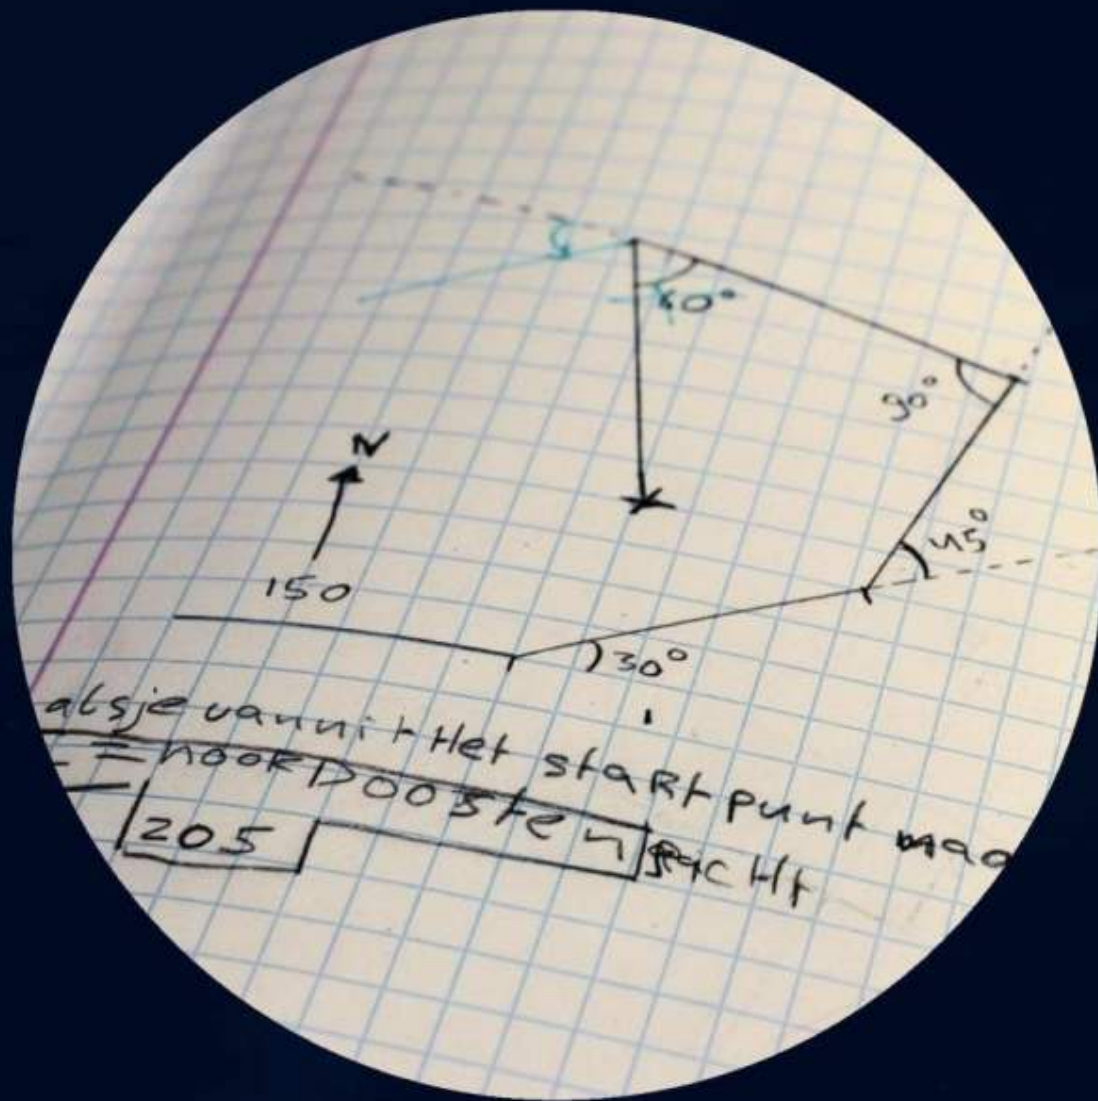 40°
90°
N
45°
150
30°
alsje vannit Het startpunt maa
= nooRDOosten RicHt
205